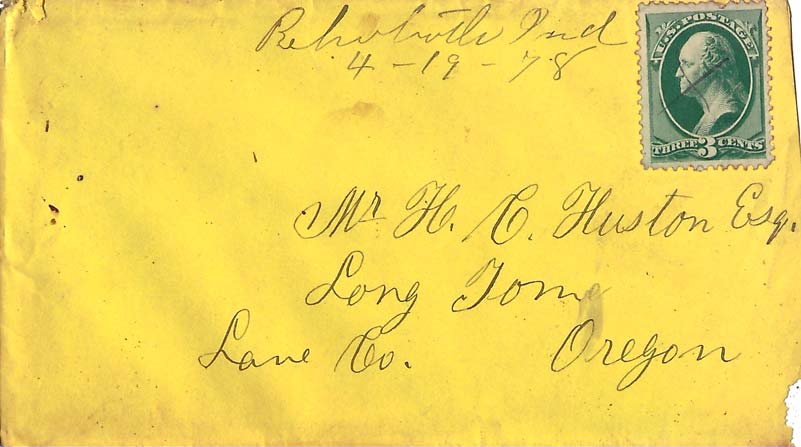 Rehoboth Ind
4-19-78
U.S. POSTAGE
THREE 3 CENTS
Mr H. C. Huston Esq.
Long Tom
Lane Co. Oregon